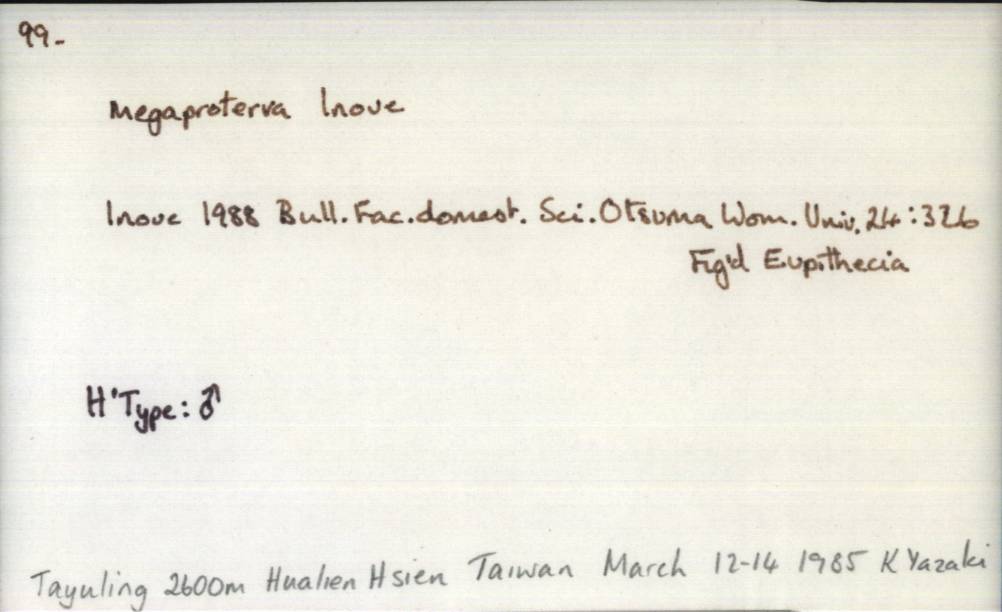 99-
Megaproterva Inoue
Inoue 1988 Bull. Fac. domest. Sci. Otsuma Wom. Univ. 24:326
Fig'd Eupithecia
H'Type: ♂
Tayuling 2600m Hualien Hsien Taiwan March 12-14 1985 K Yazaki